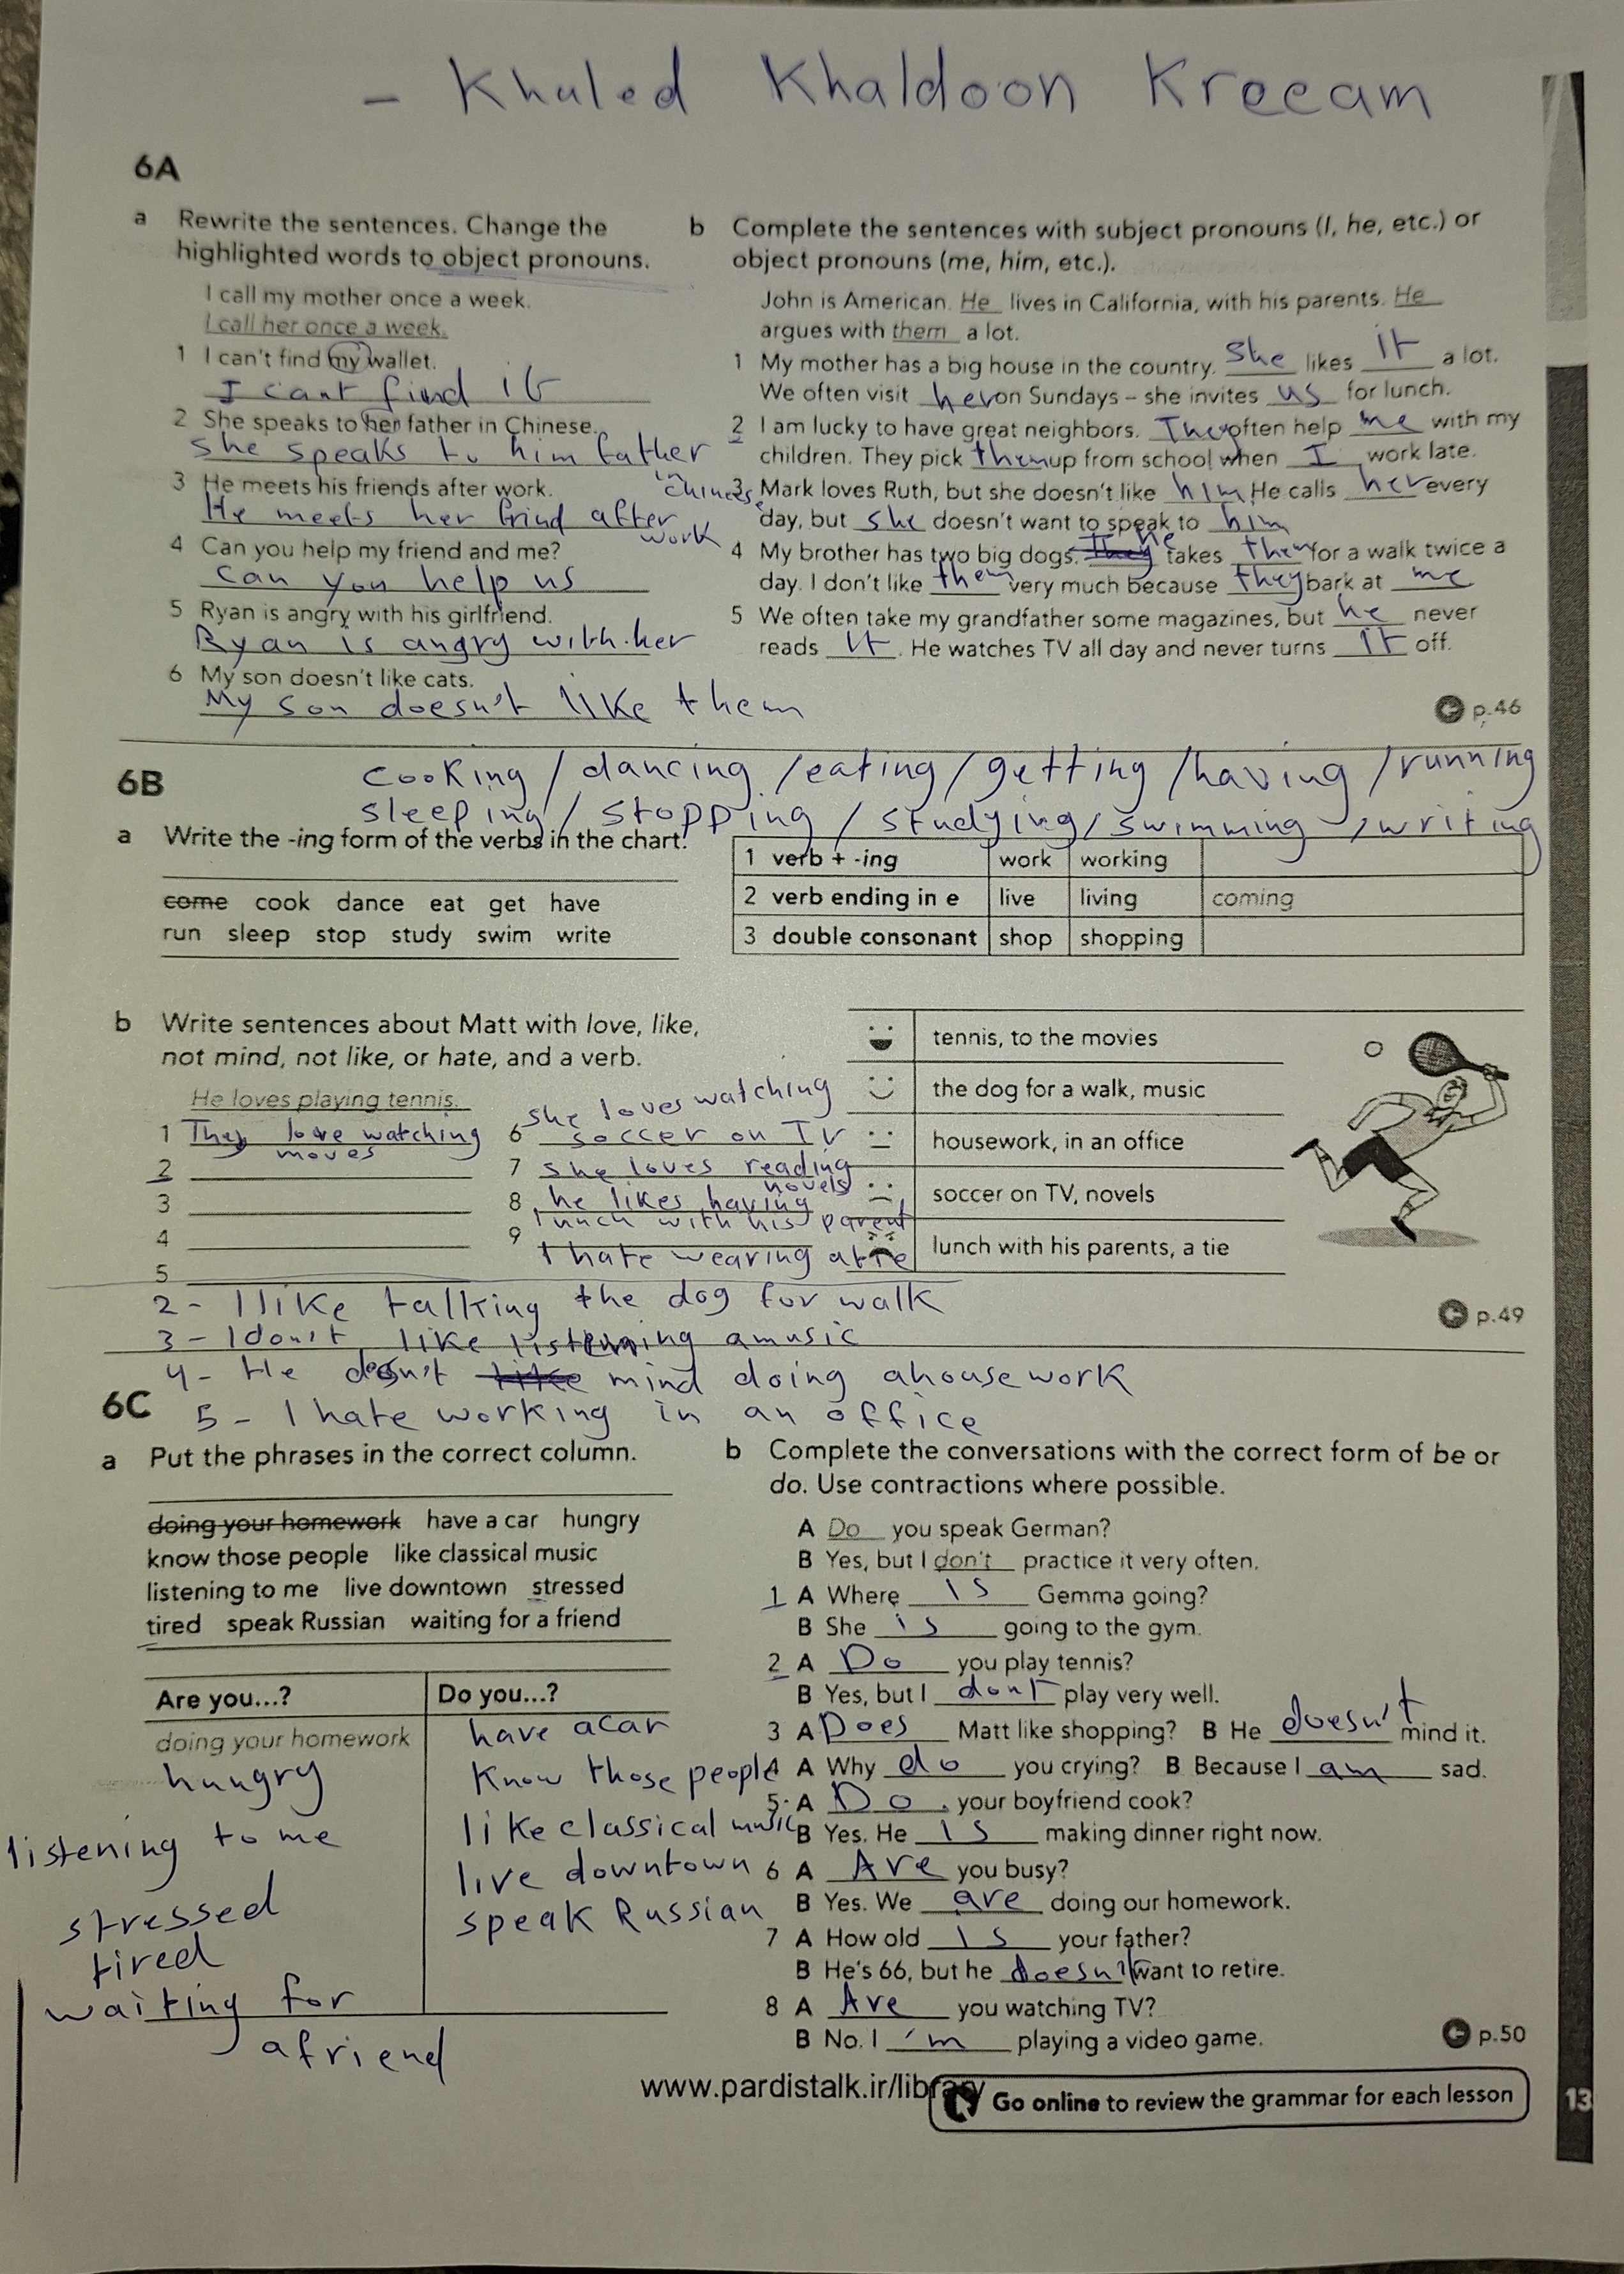 - Khaled Khaldoon Kreecam
6A
a Rewrite the sentences. Change the
highlighted words to object pronouns.
I call my mother once a week.
I call her once a week.
1 I can't find my wallet.
I cant find it
2 She speaks to her father in Chinese.
She speaks to him father
in
chinese
3 He meets his friends after work.
He meets her frind after
work
4 Can you help my friend and me?
can you help us
5 Ryan is angry with his girlfriend.
Ryan is angry with her
6 My son doesn't like cats.
My son doesn't like them
b Complete the sentences with subject pronouns (I, he, etc.) or
object pronouns (me, him, etc.).
John is American. He lives in California, with his parents. He
argues with them a lot.
1 My mother has a big house in the country. She likes it a lot.
We often visit her on Sundays – she invites us for lunch.
2 I am lucky to have great neighbors. They often help me with my
children. They pick them up from school when I work late.
3 Mark loves Ruth, but she doesn't like him. He calls her every
day, but she doesn't want to speak to him
4 My brother has two big dogs. They he takes them for a walk twice a
day. I don't like them very much because they bark at me
5 We often take my grandfather some magazines, but he never
reads It. He watches TV all day and never turns IT off.
p.46
6B
cooking / dancing / eating / getting / having / running
sleeping / stopping / studying / swimming / writing
a Write the -ing form of the verbs in the chart.
come cook dance eat get have
run sleep stop study swim write
1 verb + -ing work working
2 verb ending in e live living coming
3 double consonant shop shopping
b Write sentences about Matt with love, like,
not mind, not like, or hate, and a verb.
He loves playing tennis.
1 They love watching
moves
2
3
4
5
she loves watching
6 soccer on TV
7 she loves reading
novels
8 he likes having
lunch with his parent
9
I hate wearing a tie
tennis, to the movies
the dog for a walk, music
housework, in an office
soccer on TV, novels
lunch with his parents, a tie
2 - I like talking the dog for walk
3 - I don't like listening amusic
4 - He doesn't like mind doing ahousework
5 - I hate working in an office
p.49
6C
a Put the phrases in the correct column.
doing your homework have a car hungry
know those people like classical music
listening to me live downtown stressed
tired speak Russian waiting for a friend
Are you...? Do you...?
doing your homework have acar
hungry Know those people
listening to me like classical music
live downtown
stressed speak Russian
tired
waiting for
afriend
b Complete the conversations with the correct form of be or
do. Use contractions where possible.
A Do you speak German?
B Yes, but I don't practice it very often.
1 A Where is Gemma going?
B She is going to the gym.
2 A Do you play tennis?
B Yes, but I dont play very well.
3 A Does Matt like shopping? B He doesn't mind it.
4 A Why do you crying? B Because I am sad.
5 A Do your boyfriend cook?
B Yes. He is making dinner right now.
6 A Are you busy?
B Yes. We are doing our homework.
7 A How old is your father?
B He's 66, but he doesn't want to retire.
8 A Are you watching TV?
B No. I 'm playing a video game.
p.50
www.pardistalk.ir/library
Go online to review the grammar for each lesson
13